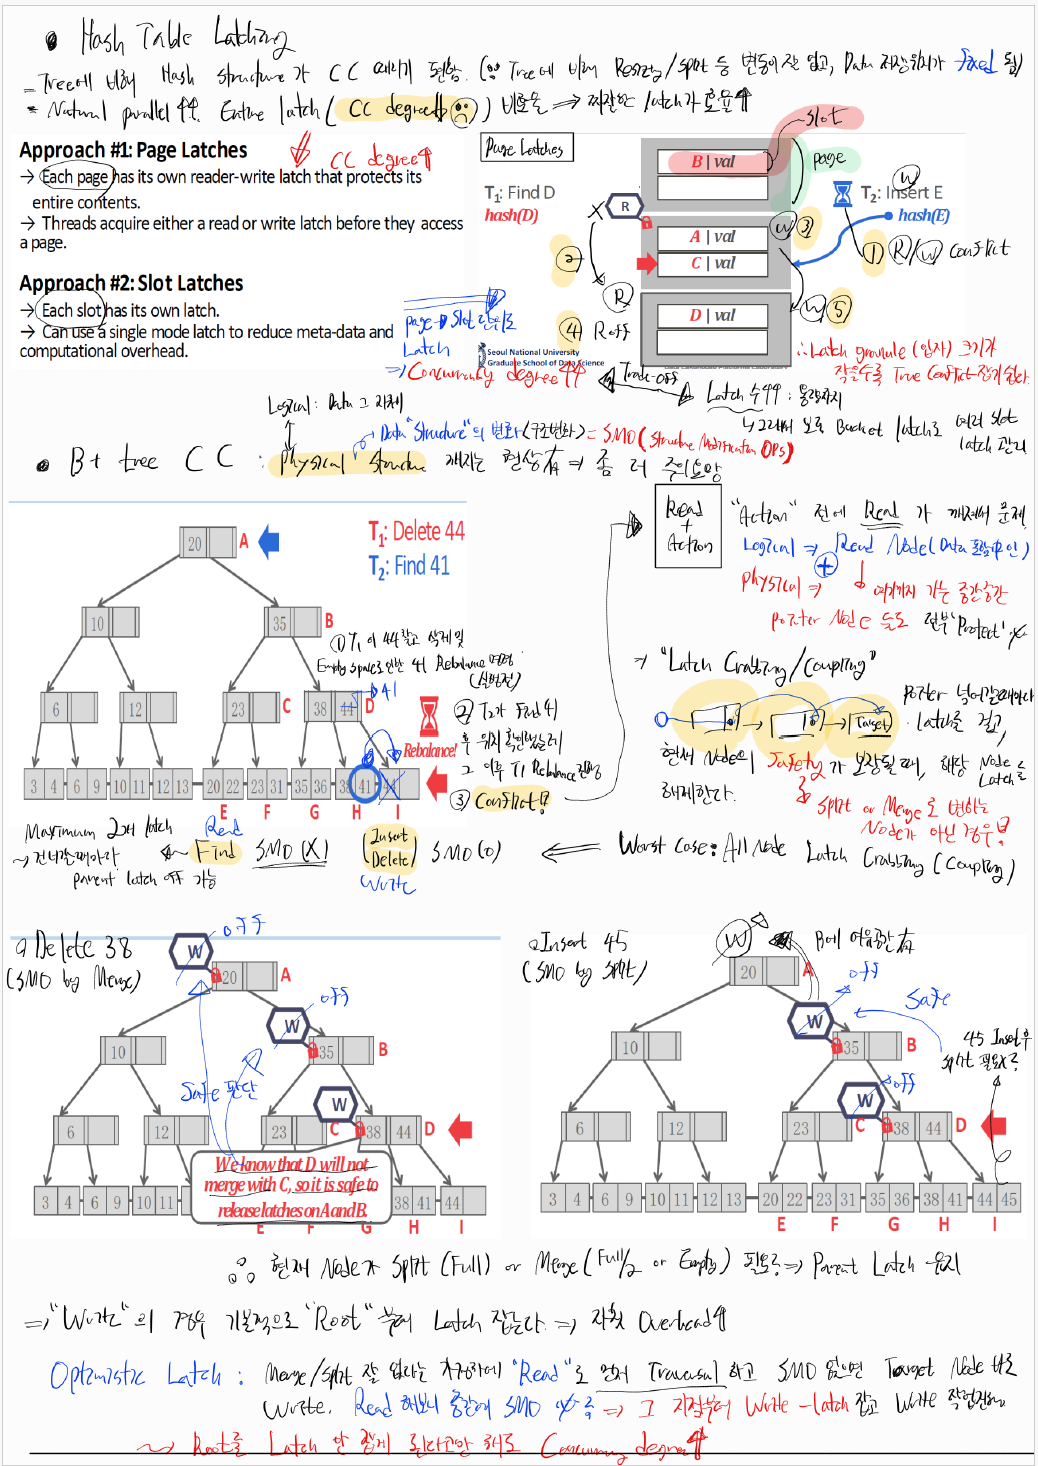 • Hash Table Latching
- Tree에 비해 Hash structure가 CC 때리기 편함. (∵ Tree에 비해 Resizing/split 등 변동이 잘 없고, Data 저장위치가 fixed 됨)
* Natural parallel ↑↑. Entire latch ( CC degree↓ ) 비효율 ⇒ 찌잘한 latch가 효율↑
⇒ CC degree↑
Approach #1: Page Latches
→ Each page has its own reader-write latch that protects its
entire contents.
→ Threads acquire either a read or write latch before they access
a page.
Approach #2: Slot Latches
→ Each slot has its own latch.
→ Can use a single mode latch to reduce meta-data and
computational overhead.
page → Slot 단위로
Latch
⇒ Concurrency degree ↑↑
Page Latches
slot
page
T1: Find D
hash(D)
R
B | val
A | val
C | val
D | val
W
T2: Insert E
hash(E)
① R/W Conflict
②
W ③
R
④ R off
W ⑤
Seoul National University
Graduate School of Data Science
∴ Latch granule (입자) 크기가
작을수록 True Conflict 잡기 쉽다.
Trade-off
Latch 수 ↑↑ :
↳ 그래서 보통 Bucket latch로 여러 slot
latch 관리
Logical : Data 그 자체
Data "Structure"의 변화 (구조변화) = SMO (Structure Modification OPs)
• B+ tree CC : Physical Structure 깨지는 현상 有 ⇒ 좀 더 주의요망
T1: Delete 44
T2: Find 41
20 A
10 35 B
6 12 23 C 38 44 D
41
3 4 6 9 10 11 12 13 20 22 23 31 35 36 38 41 44
E F G H I
① T1이 44 찾고 삭제 및
Empty space로 인한 41 Rebalance 명령
(실행전)
② T2가 Find 41
후 위치 확인했는데
그 이후 T1 Rebalance 진행
③ Conflict!
Rebalance!
Read
+
Action
"Action" 전에 Read 가 깨져서 문제
Logical ⇒ Read Node (Data 포함 확인)
+
Physical ⇒ 여기까지 가는 중간중간
pointer Node 들도 전부 'Protect'
⇒ "Latch Crabbing/Coupling"
Target
Pointer 넘어갈때마다
latch를 걸고,
현재 Node의 Safety가 보장될 때, 해당 Node Latch를
해제한다.
Split or Merge로 변하는
Node가 아닌 경우!
Maximum 2개 latch
→ 건너갈때마다
parent latch off 가능
Read
Find SMO (X)
Insert
Delete SMO (O)
Write
⇐ Worst Case : All Node Latch Crabbing (Coupling)
Delete 38
(SMO by Merge)
W off
20 A
W off
10 35 B
Safe 판단
W
6 12 23 C 38 44 D
We know that D will not
merge with C, so it is safe to
release latches on A and B.
3 4 6 9 10 11 38 41 44
E F G H I
Insert 45
(SMO by Split)
W
B에 여유공간 有
20 A
W off
Safe
10 35 B
45 Insert후
split 필요X?
W off
6 12 23 C 38 44 D
3 4 6 9 10 11 12 13 20 22 23 31 35 36 38 41 44 45
E F G H I
∴ 현재 Node가 Split (Full) or Merge (Full/2 or Empty) 필요? ⇒ Parent Latch 유지
⇒ "Write"의 경우 기본적으로 "Root" 부터 Latch 잡는다. ⇒ 자칫 Overhead↑
Optimistic Latch : Merge/Split 잘 없다는 가정하에 "Read"로 먼저 Traversal 하고 SMO 없으면 Target Node 바로
Write. Read 해보니 중간에 SMO ? ⇒ 그 지점부터 Write-latch 잡고 Write 작업진행.
~> Root를 Latch 안 잡게 된다고만 해도 Concurrency degree↑